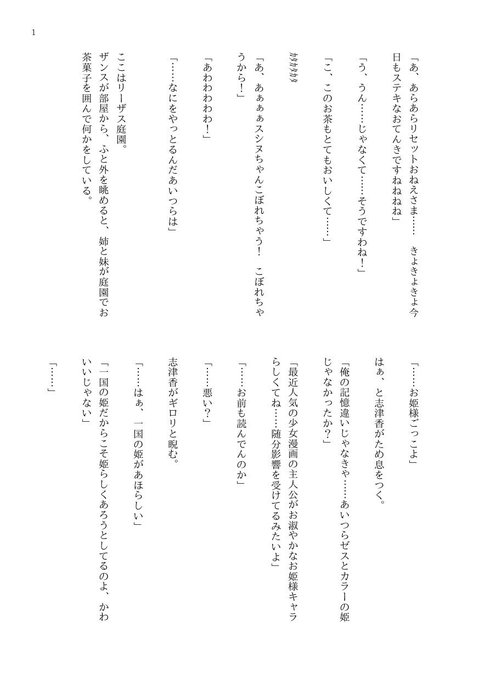 1
「あ、あらあらリセットおねえさま……　きょきょきょ今
日もステキなおてんきですねねねね」
「う、うん……じゃなくて……そうですわね！」
「こ、このお茶もとてもおいしくて……」
ｶﾀｶﾀｶﾀｶﾀ
「あ、あぁぁぁスシヌちゃんこぼれちゃう！　こぼれちゃ
うから！」
「あわわわわわ！」
「……なにをやっとるんだあいつらは」
ここはリーザス庭園。
ザンスが部屋から、ふと外を眺めると、姉と妹が庭園でお
茶菓子を囲んで何かをしている。
「……お姫様ごっこよ」
はぁ、と志津香がため息をつく。
「俺の記憶違いじゃなきゃ……あいつらゼスとカラーの姫
じゃなかったか？」
「最近人気の少女漫画の主人公がお淑やかなお姫様キャラ
らしくてね……随分影響を受けてるみたいよ」
「……お前も読んでんのか」
「……悪い？」
志津香がギロリと睨む。
「……はぁ、一国の姫があほらしい」
「一国の姫だからこそ姫らしくあろうとしてるのよ、かわ
いいじゃない」
「……」